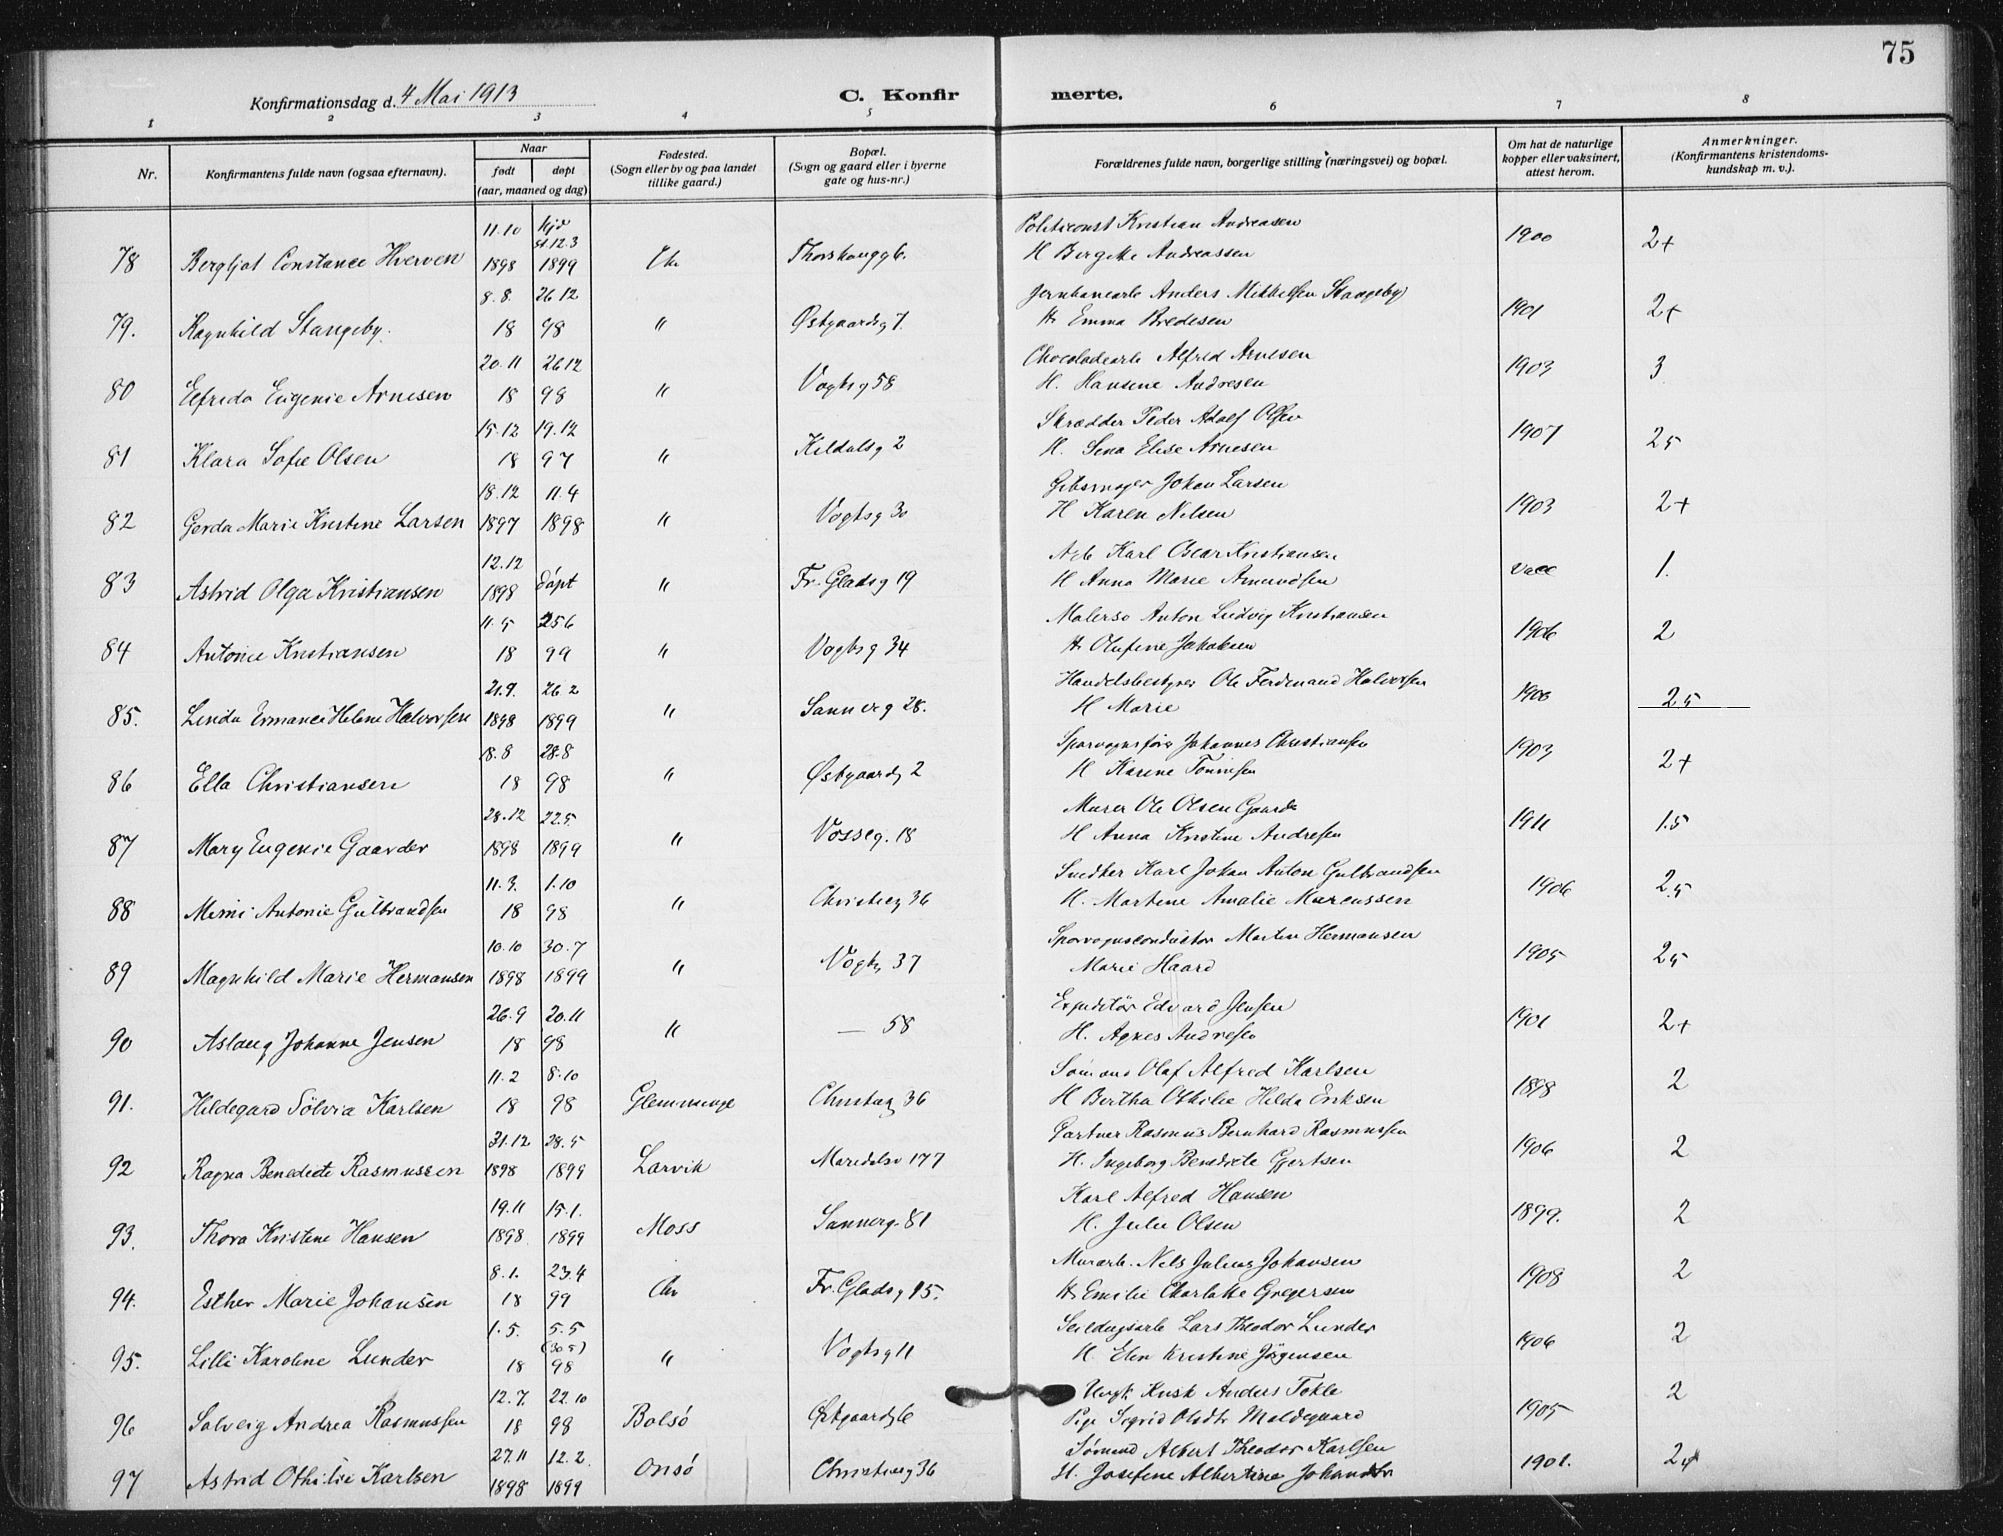 75
Konfirmationsdag d. 4 Mai 1913 C. Konfir merte.
1 2 3 4 5 6 7 8
Nr. Konfirmantens fulde navn (ogsaa efternavn). Naar født døpt (aar, maaned og dag) Fødested. (Sogn eller by og paa landet tillike gaard.) Bopæl. (Sogn og gaard eller i byerne gate og hus-nr.) Forældrenes fulde navn, borgerlige stilling (næringsvei) og bopæl. Om hat de naturlige kopper eller vaksinert, attest herom. Anmerkninger. (Konfirmantens kristendoms-kundskap m. v.).
11.10 12.3 Kristian Andreasen
78 Bergljot Constance Hverven 1898 1899 Chr H Bergitte Andreassen 1900 2+
8.8. 26 12 Jernbanearb Anders Mikkelsen Stangeby
79. Ragnhild Stangeby. 18 98 " Østgaardsg 7. H Emma Bredesen 1901 2+
20.11 26 12 Chocoladearb Alfred Arnesen
80 Elfrida Eugenie Arnesen 18 98 " Vogtsg 58 H. Hansine Andresen 1903 3
15.12 19.12 Skrædder Peder Adolf Olsen
81 Klara Sofie Olsen 18 97 " Kildalsg 2 H. Lina Elise Arnesen 1907 25
18.12 11.4 Gibsmager Johan Larsen
82 Gerda Marie Kristine Larsen 1897 1898 " Vogtsg 30 H Karen Nilsen 1903 2+
12.12 Arb Karl Oscar Kristiansen
83 Astrid Olga Kristiansen 1898 døpt " Fr. Gladsg 19 H Anna Marie Amundsen vacc 1.
11.5 25 6 Malersv Anton Ludvig Kristiansen
84 Antonie Kristiansen 18 99 " Vogtsg 34 H Olufine Jakobsen 1906 2
21.9. 26 2 Handelsbestyrer Ole Ferdinand Halvorsen
85. Linda Ermance Helene Halvorsen 1898 1899 " Sannerg 28. H Marie 1900 25
18.8 28.8 Sporvognsfører Johannes Christiansen
86 Ella Christiansen 18 98 " Østgaardg 2 H Karine Tønnesen 1903 2+
28.12 22.5 Murer Ole Olsen Gaarder
87 Mary Eugenie Gaarder 1898 1899 " Vosseg. 18 H Anna Kristine Andresen 1911 1.5
11.3. 1.10 Snedker Karl Johan Anton Gulbrandsen
88 Mimi Antonie Gulbrandsen 18 98 " Christieg 36 H. Martine Amalie Marcussen 1906 2.5
10.10 30.7 Sporvognsconductør Martin Hermansen
89 Magnhild Marie Hermansen 1898 1899 " Vogtsg 37 Marie Haard 1905 25
26.9 20.11 Expeditør Edvard Jensen
90 Aslaug Johanne Jensen 18 98 " — 58 H. Agnes Andresen 1901 2+
11.2 8.10 Sømand Olaf Alfred Karlsen
91. Hildegard Sölvia Karlsen 18 98 Glemminge Christieg 36 H Bertha Othilie Hilda Eriksen 1898 2
31.12 28.5 Gartner Rasmus Bernhard Rasmussen
92 Ragna Benedicte Rasmussen 1898 1899 Larvik Maridalsv 177 H. Ingeborg Benedicte Gjertsen 1906 2
19.11 15.1. Karl Alfred Hansen
93. Thora Kristine Hansen 1898 1899 Moss Sannerg. 81 H. Julie Olsen 1899. 2
8.1. 23.4 Murarb. Nils Julius Johansen
94. Esther Marie Johansen 18 99 Chr Fr. Gladsg 15. H Emilie Charlotte Gregersen 1908 2
1.5. 5.5 (30 5) Seildugsarb Lars Theodor Lunder
95. Lilli Karoline Lunder 18 98 " Vogtsg 11 H. Elen Kristine Jørgensen 1906 2
12.7. 22.10 Ungk Kusk Anders Tokle
96 Solveig Andrea Rasmussen 18 98 Bolsø Østgaardsg 6 Pige Sigrid Olsdtr Moldegaard 1905 2
27.11 12.2. Sømand Albert Theodor Karlsen
97 Astrid Othilie Karlsen 1898 1899 Onsø Christieg 36 H. Josefine Albertine 1901. 2